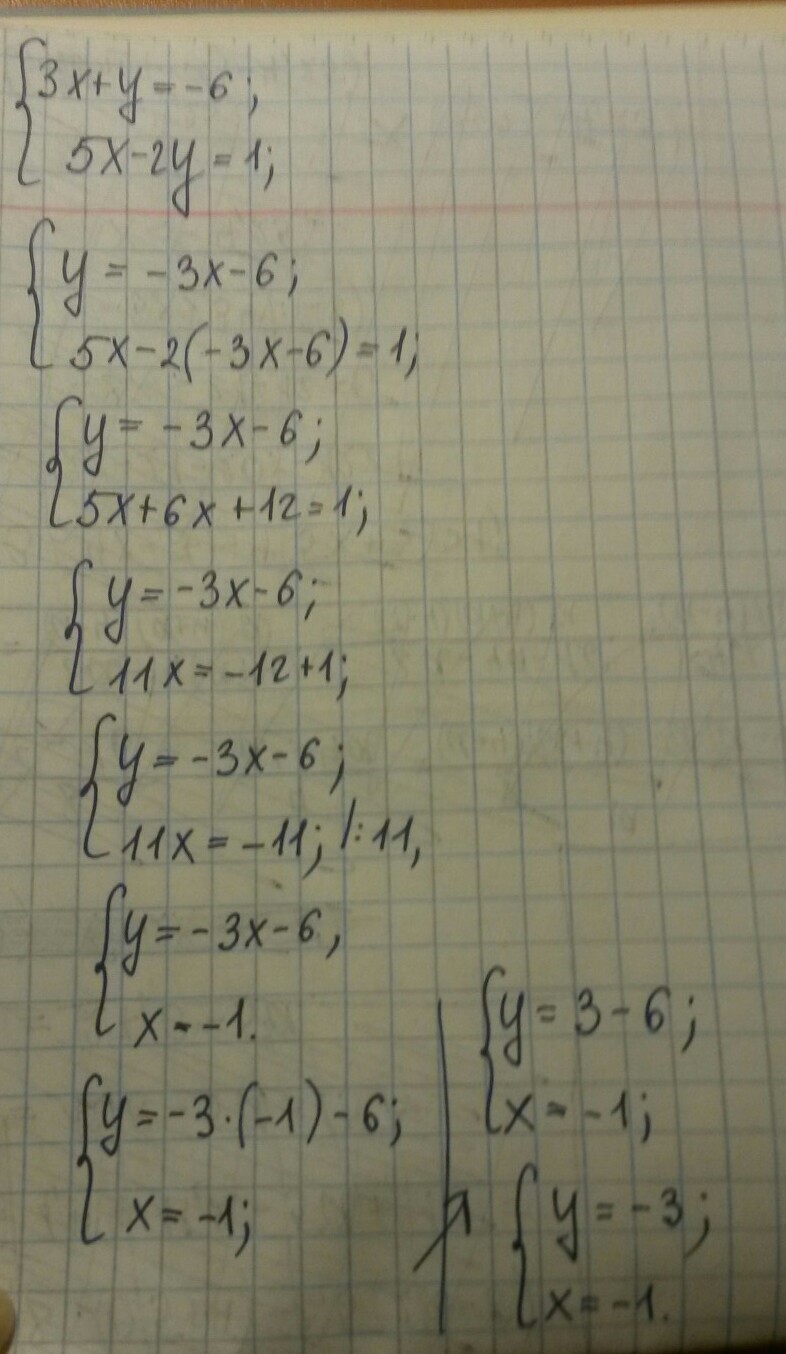 3x+y=-6;
5x-2y=1;
y=-3x-6;
5x-2(-3x-6)=1;
y=-3x-6;
5x+6x+12=1;
y=-3x-6;
11x=-12+1;
y=-3x-6;
11x=-11; /:11,
y=-3x-6,
x=-1.
y=-3·(-1)-6;
x=-1;
y=3-6;
x=-1;
y=-3;
x=-1.